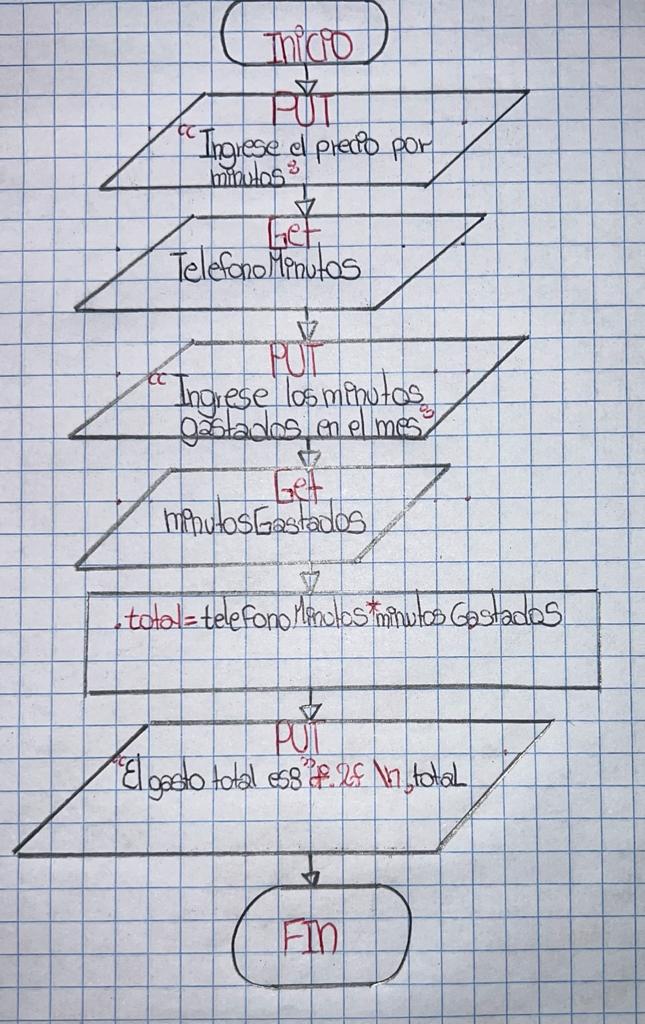 Inicio
PUT
"Ingrese el precio por
minutos:
Get
TelefonoMinutos
PUT
"Ingrese los minutos
gastados en el mes:
Get
minutosGastados
total=telefonoMinutos*minutosGastados
PUT
"El gasto total es: " .2f \n, total
FIN